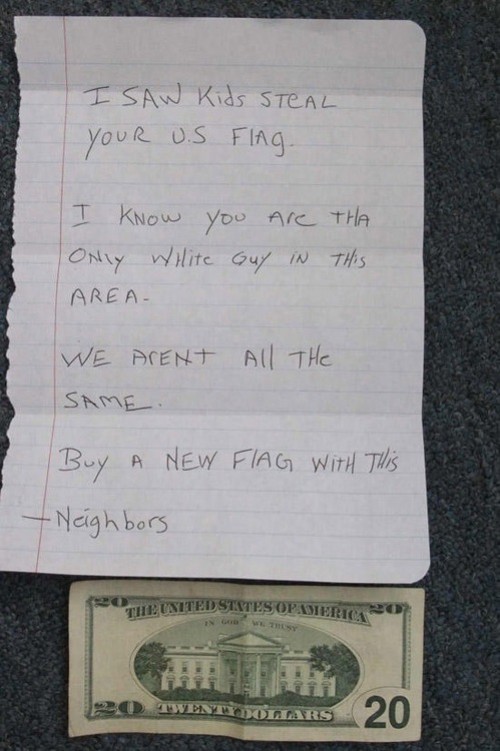 I SAW Kids STEAL
YOUR U.S FlAg.
I KNOW YOU Are tHA
ONly WHite Guy IN THis
AREA-
WE ArENt All THe
SAME.
Buy A NEW FlAG WitH THis
- Neighbors
20 THE UNITED STATES OF AMERICA 20
IN GOD WE TRUST
20 TWENTY DOLLARS 20